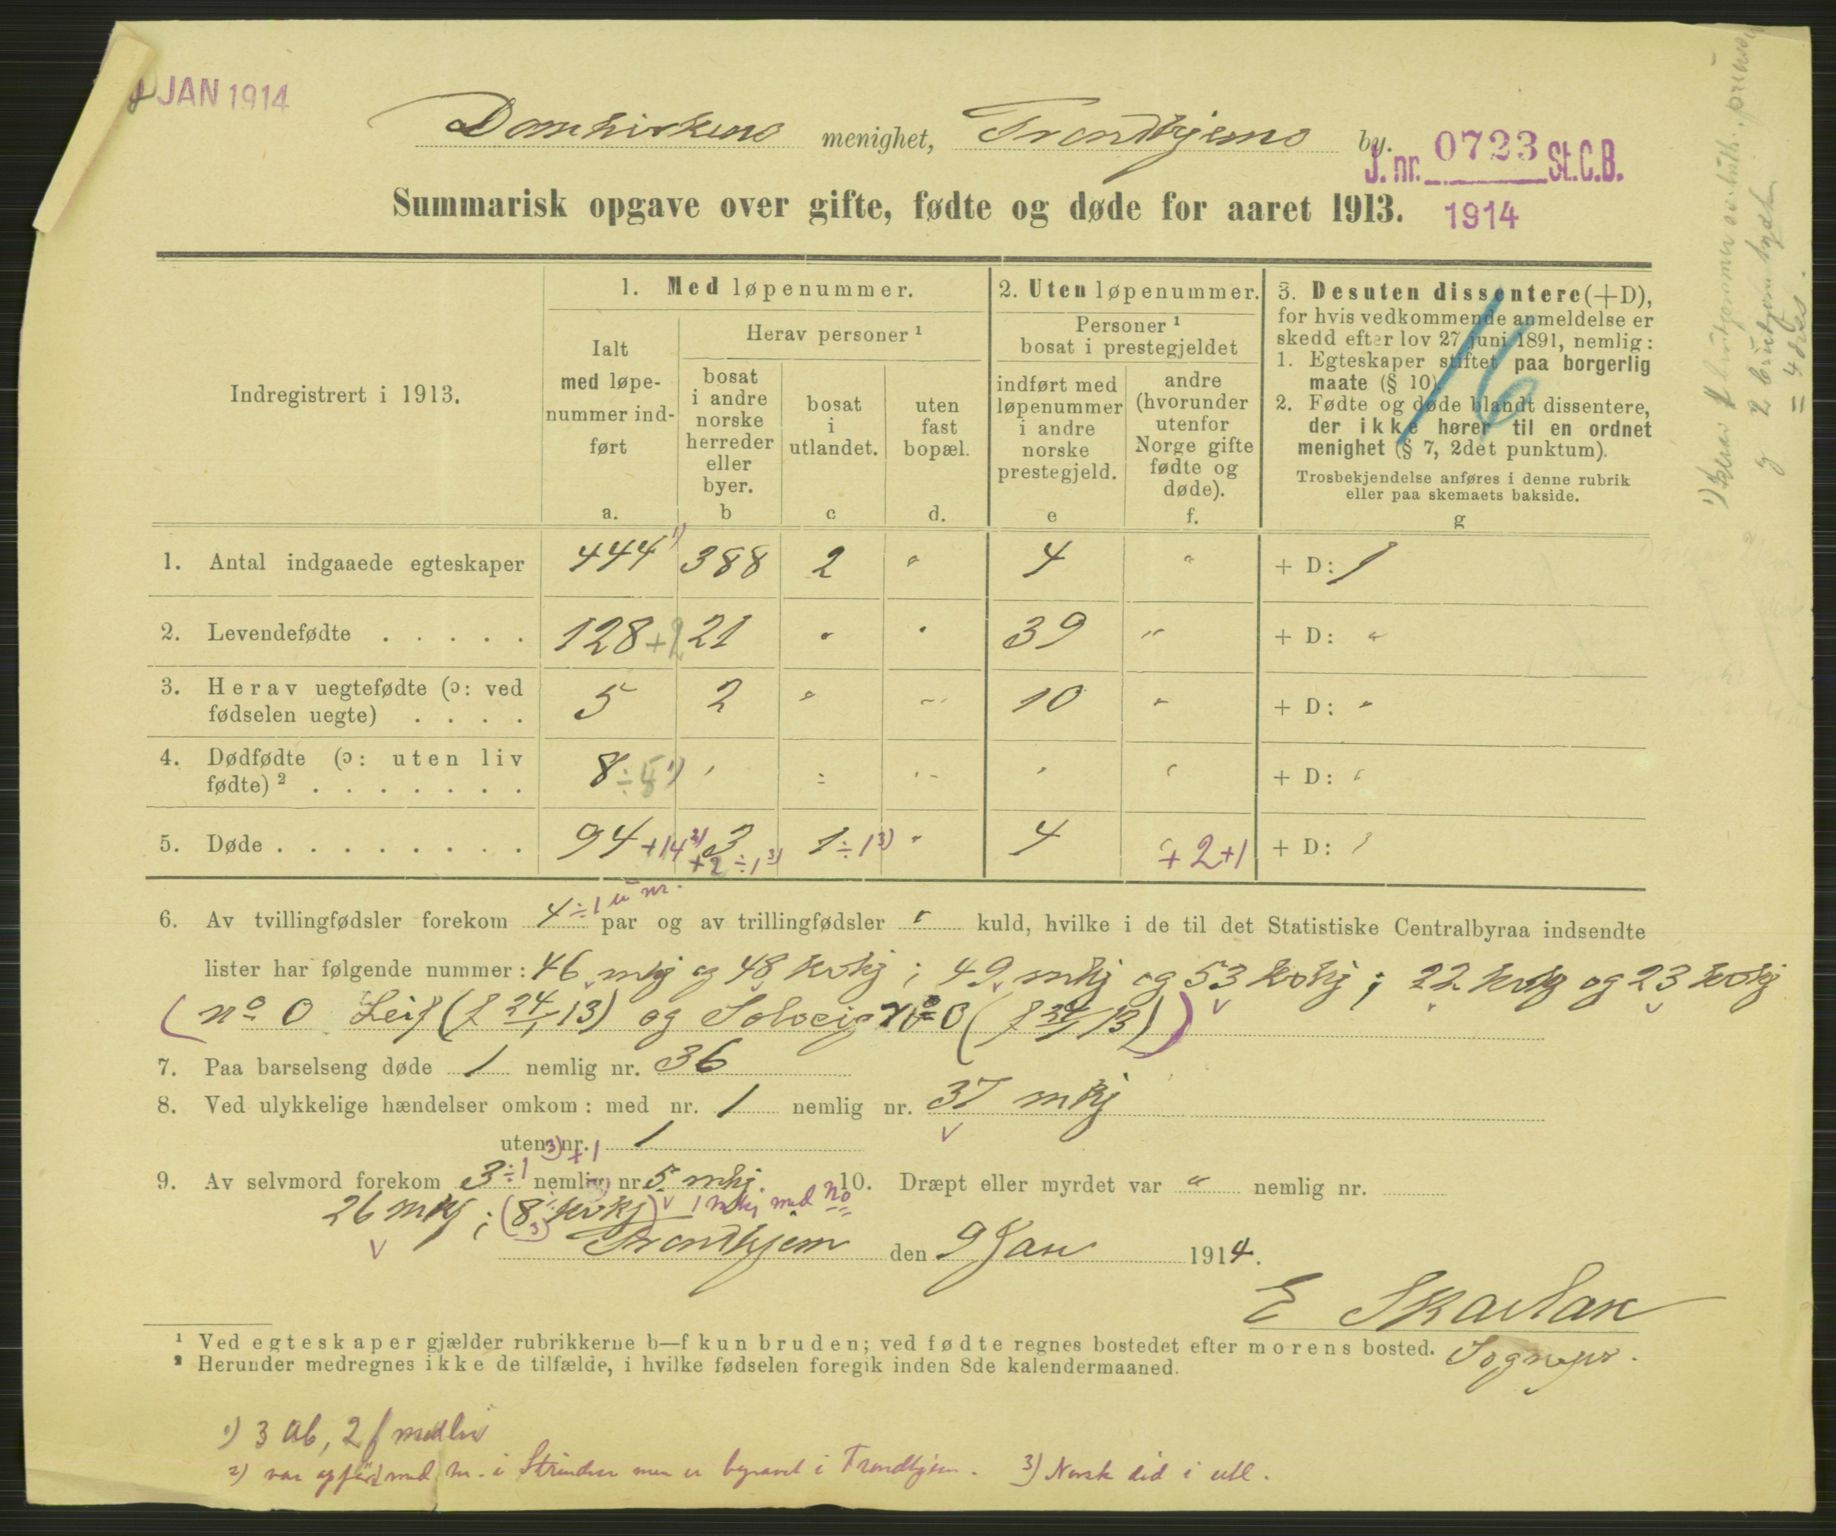 JAN 1914
Domkirkens menighet, Trondhjems by.
J. nr. 0723 St.C.B.
Summarisk opgave over gifte, fødte og døde for aaret 1913.
1914
Indregistrert i 1913.
1. Med løpenummer.
Ialt
med løpe-
nummer ind-
ført
a.
Herav personer ¹
bosat
i andre
norske
herreder
eller
byer.
b
bosat
i
utlandet.
c
uten
fast
bopæl.
d.
2. Uten løpenummer.
Personer ¹
bosat i prestegjeldet
indført med
løpenummer
i andre
norske
prestegjeld.
e
andre
(hvorunder
utenfor
Norge gifte
fødte og
døde).
f.
3. Desuten dissentere (+D),
for hvis vedkommende anmeldelse er
skedd efter lov 27 juni 1891, nemlig:
1. Egteskaper stiftet paa borgerlig
maate (§ 10).
2. Fødte og døde blandt dissentere,
der ikke hører til en ordnet
menighet (§ 7, 2det punktum).
Trosbekjendelse anføres i denne rubrik
eller paa skemaets bakside.
g
16
1. Antal indgaaede egteskaper 444 ¹) 388 2 " 4 " + D: 1
2. Levendefødte . . . . . 128 +2 21 " " 39 " + D: "
3. Herav uegtefødte (ɔ: ved
fødselen uegte) . . . . 5 2 " " 10 " + D: "
4. Dødfødte (ɔ: uten liv
fødte) ² . . . . . . . 8 ÷5 ¹) " " " " " + D: "
5. Døde . . . . . . . . 94 +14 ²) 3 +2 ÷1 ³) 1 ÷1 ³) " 4 " +2+1 + D: "
6. Av tvillingfødsler forekom 4 ÷1 u nr. par og av trillingfødsler " kuld, hvilke i de til det Statistiske Centralbyraa indsendte
lister har følgende nummer: 46 mkj og 48 kvkj; 49 mkj og 53 kvkj; 22 kvkj og 23 kvkj
(no 0 Leif (f 24/1 13) og Solveig no 0 (f 24/1 13))
7. Paa barselseng døde 1 nemlig nr. 36
8. Ved ulykkelige hændelser omkom: med nr. 1 nemlig nr. 37 mkj
uten nr. 1
³) +1
9. Av selvmord forekom 3 ÷1 nemlig nr 5 mkj. 10. Dræpt eller myrdet var " nemlig nr.
26 mkj; (8 kvkj) 1 mkj med no
³)
Trondhjem den 9 Jan 1914.
E Skavlan
Sognepr.
¹ Ved egteskaper gjælder rubrikkerne b—f kun bruden; ved fødte regnes bostedet efter morens bosted.
² Herunder medregnes ikke de tilfælde, i hvilke fødselen foregik inden 8de kalendermaaned.
¹) 3 ab, 2 f
²) var opført med nr. i Strinden men er begravet i Trondhjem. ³) Norsk död i utl.